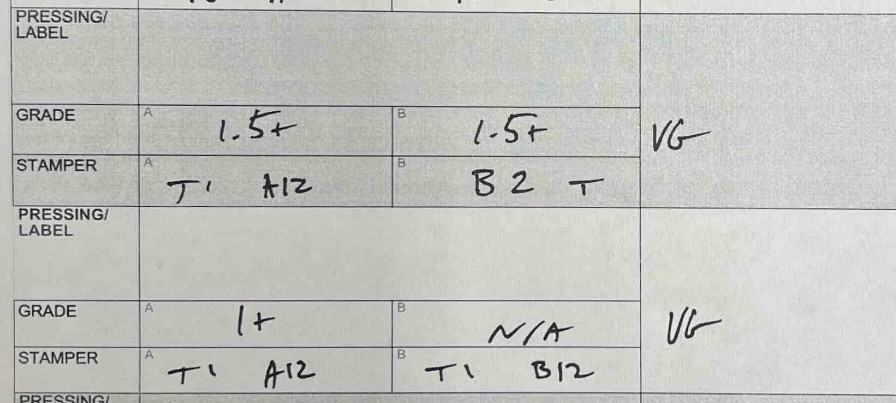 PRESSING/
LABEL
GRADE A 1.5+ B 1.5+ VG
STAMPER A T1 A12 B B2 T
PRESSING/
LABEL
GRADE A 1+ B N/A VG
STAMPER A T1 A12 B T1 B12
PRESSING/